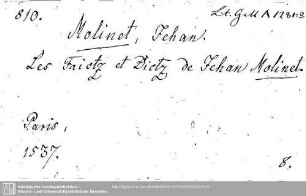 810.
Lit. G. M A 1281-2
Molinet, Jehan.
Les Faictz et Dictz de Jehan Molinet.
Paris,
1537.
8.
Sächsische Landesbibliothek -
Staats- und Universitätsbibliothek Dresden